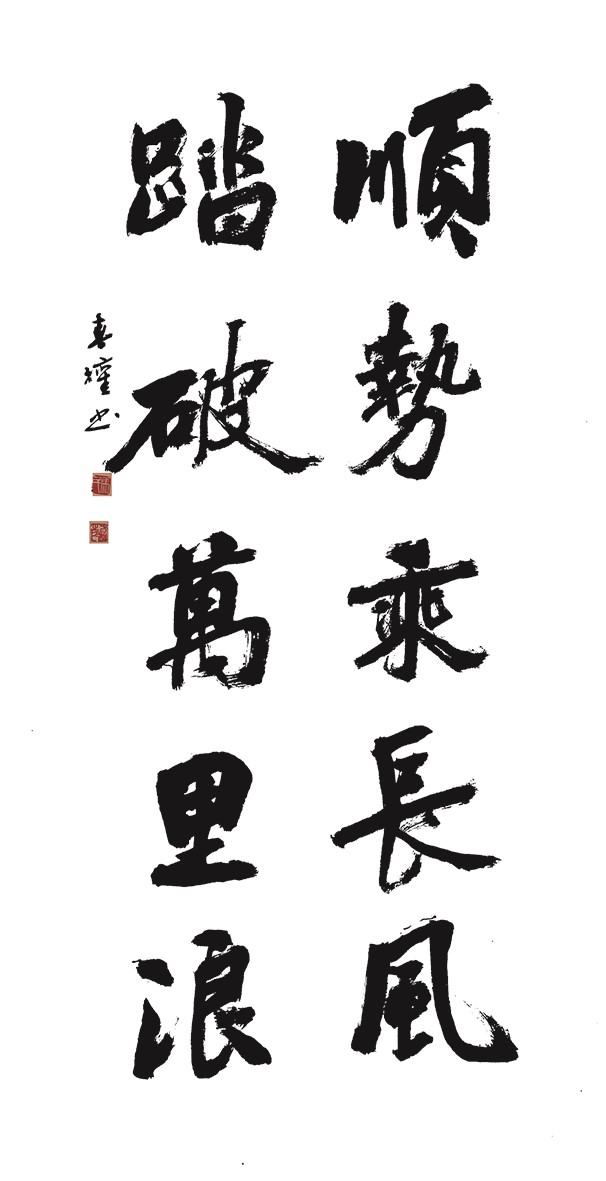 順勢乘長風
踏破萬里浪
春耀书